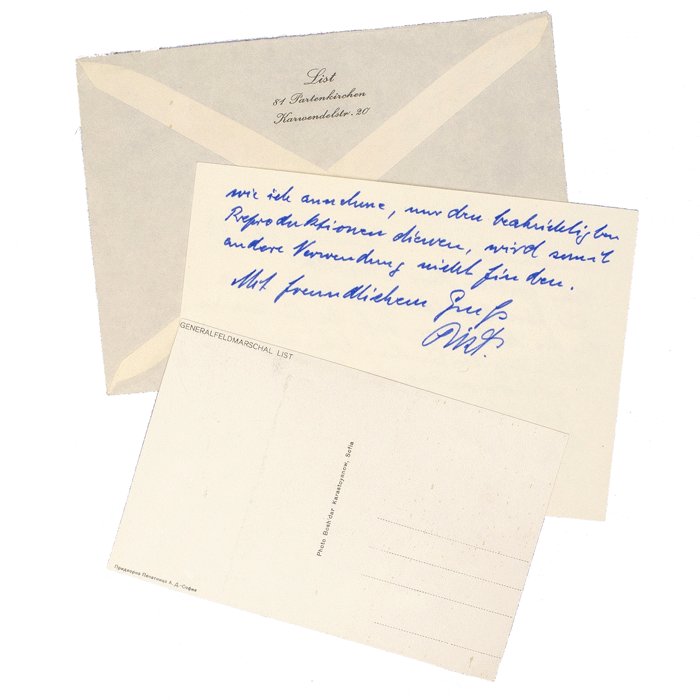 List
81 Partenkirchen
Karwendelstr. 20
wie ich annehme, nur den beabsichtigten
Reproduktionen dienen, wird somit
andere Verwendung nicht finden.
Mit freundlichem Gruß
List.
GENERALFELDMARSCHAL LIST
Photo Bosh'dar Karastoyanow, Sofia
Придворна Печатница А. Д.-София